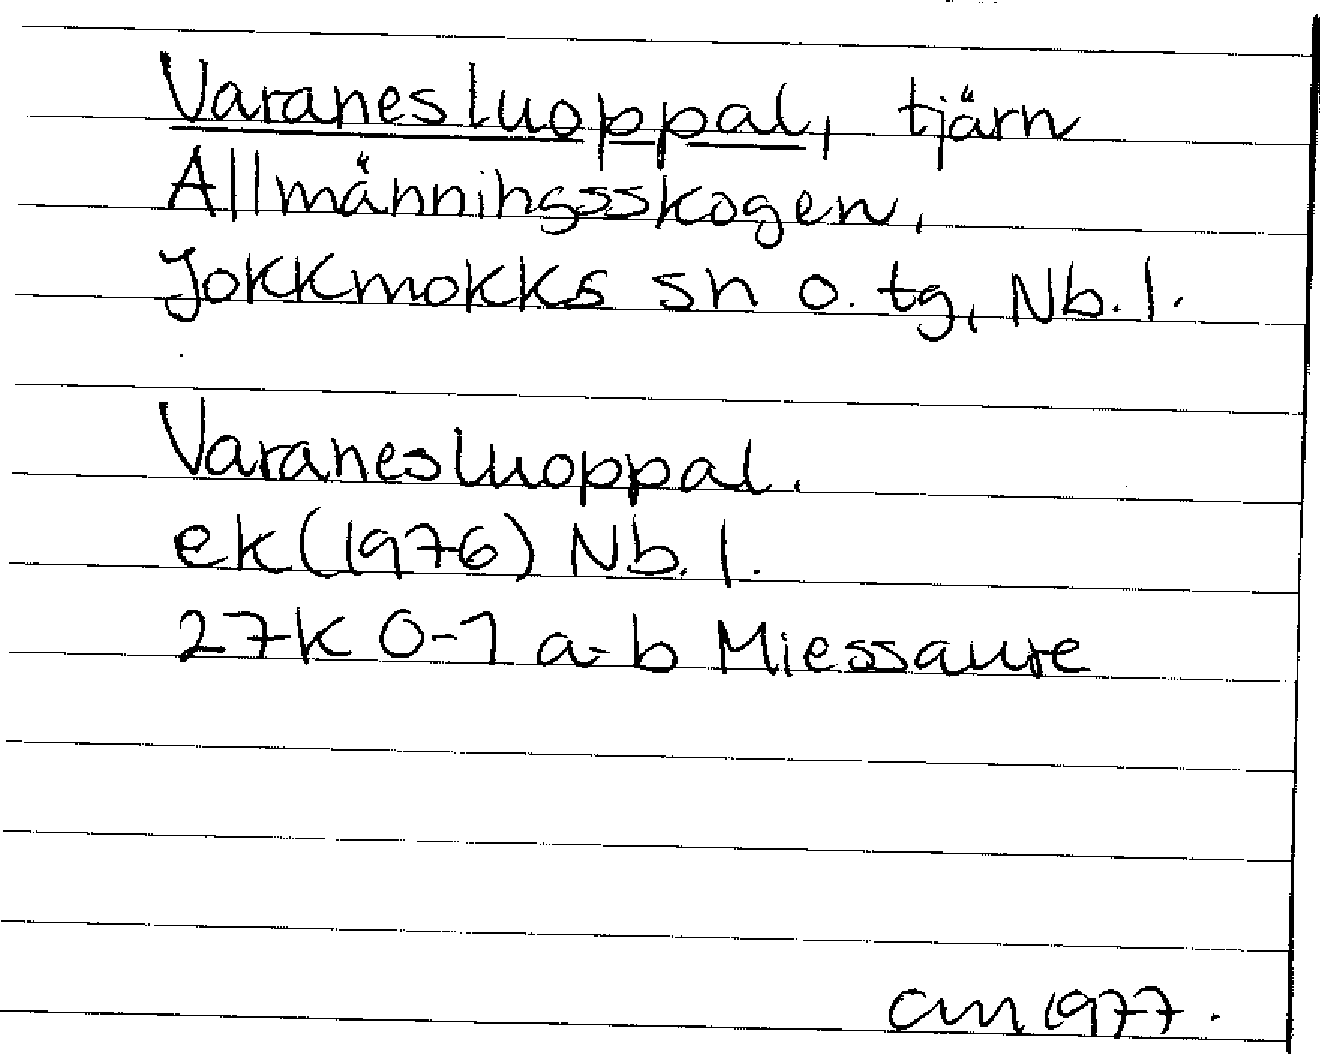 Varanesluoppal, tjärn
Allmänningsskogen,
Jokkmokks sn o. tg, Nb. l.
Varanesluoppal.
ek (1976) Nb. l.
27K 0-1 a-b Miessaure
cm 1977.